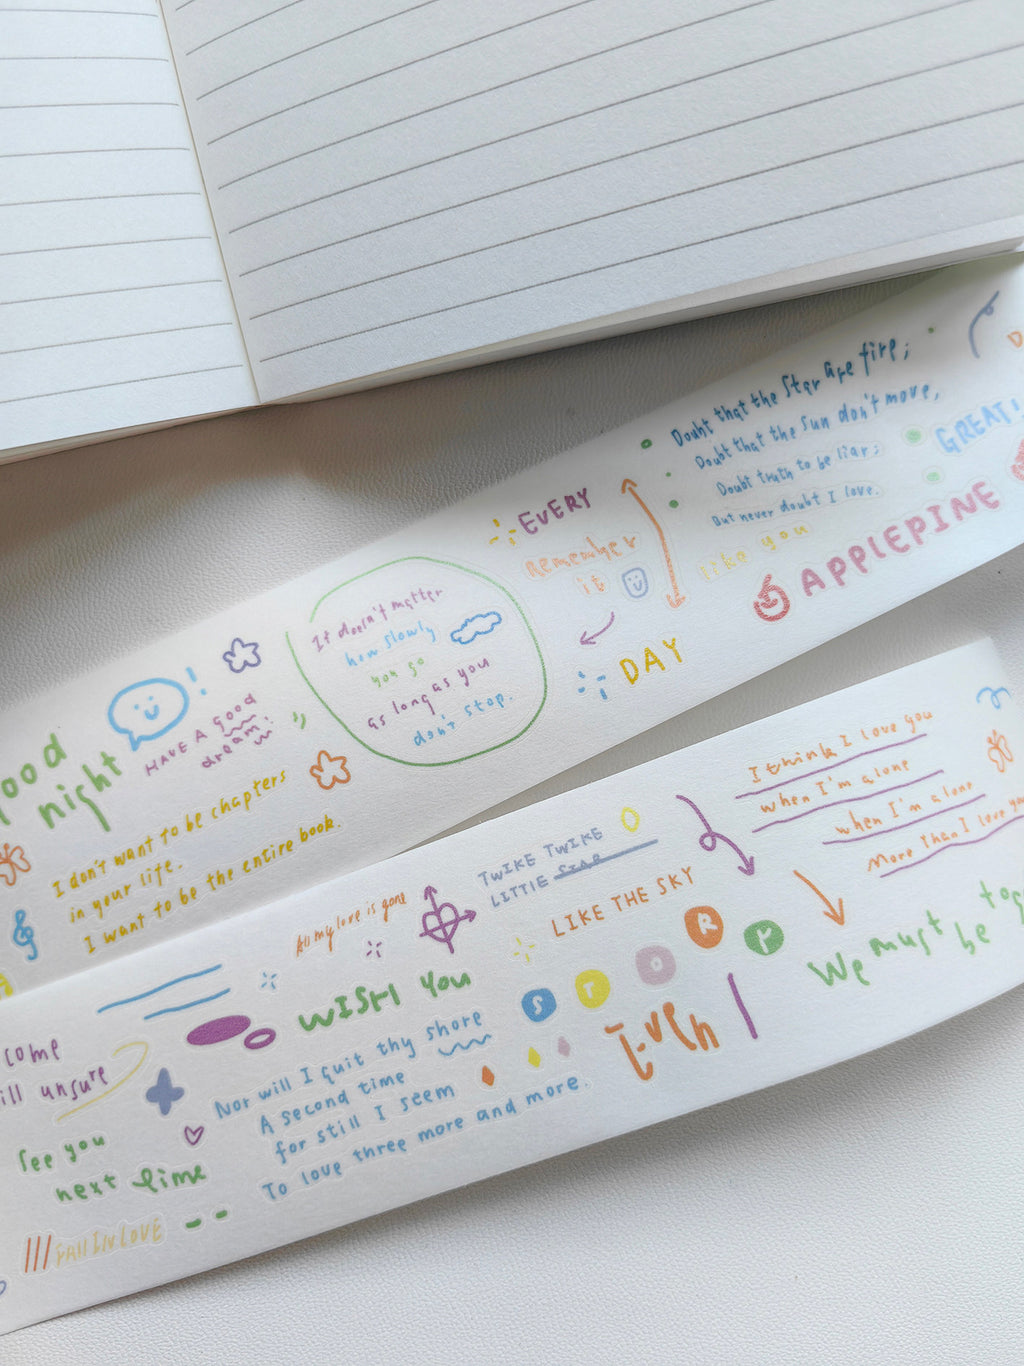 good
night
HAVE A good
dream!
I don't want to be chapters
in your life.
I want to be the entire book.
It doesn't matter
how slowly
you go
as long as you
don't stop.
EVERY
Remember
it
DAY
Doubt that the Star are fire;
Doubt that the Sun don't move,
Doubt truth to be liar;
But never doubt I love.
like you
GREAT!
APPLEPINE
come
ill unsure
See you
next time
FAll IN LOVE
All my love is gone
WISH You
Nor will I quit thy shore
A second time
for still I seem
To love three more and more.
TWIKE TWIKE
LITTLE STAR
LIKE THE SKY
STORY
Even
I think I love you
when I'm alone
when I'm alone
More than I love you
We must be tog